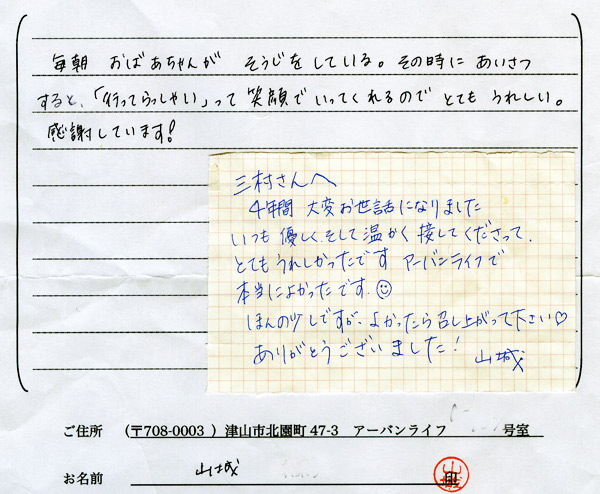 毎朝 おばあちゃんが そうじをしている。その時に あいさつ
すると、「行ってらっしゃい」って 笑顔で いってくれるので とても うれしい。
感謝しています!
三村さんへ
4年間 大変お世話になりました
いつも 優しく、そして 温かく 接してくださって、
とても うれしかったです アーバンライフで
本当によかったです。☺
ほんの少しですが、よかったら召し上がって下さい♡
ありがとうございました! 山城
ご住所 (〒708-0003 ) 津山市北園町 47-3 アーバンライフ 号室
お名前 山城 印